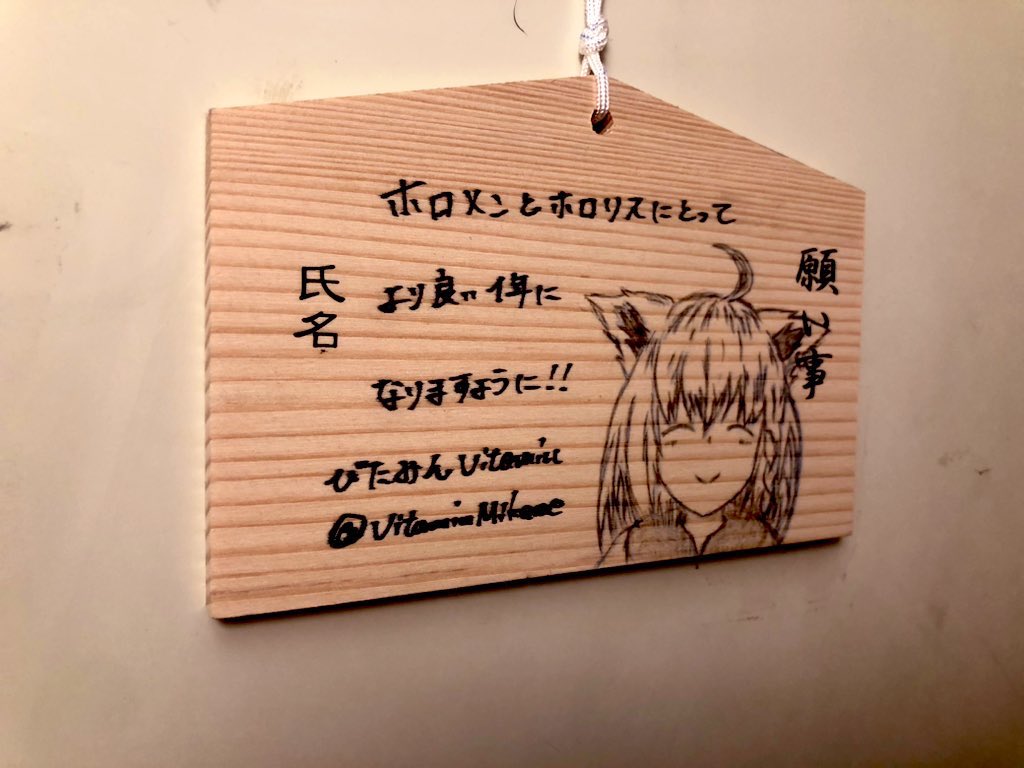 ホロメンとホロリスにとって
より良い1年に
なりますように!!
びたみん Vitamin
@VitaminMikane
願い事
氏名